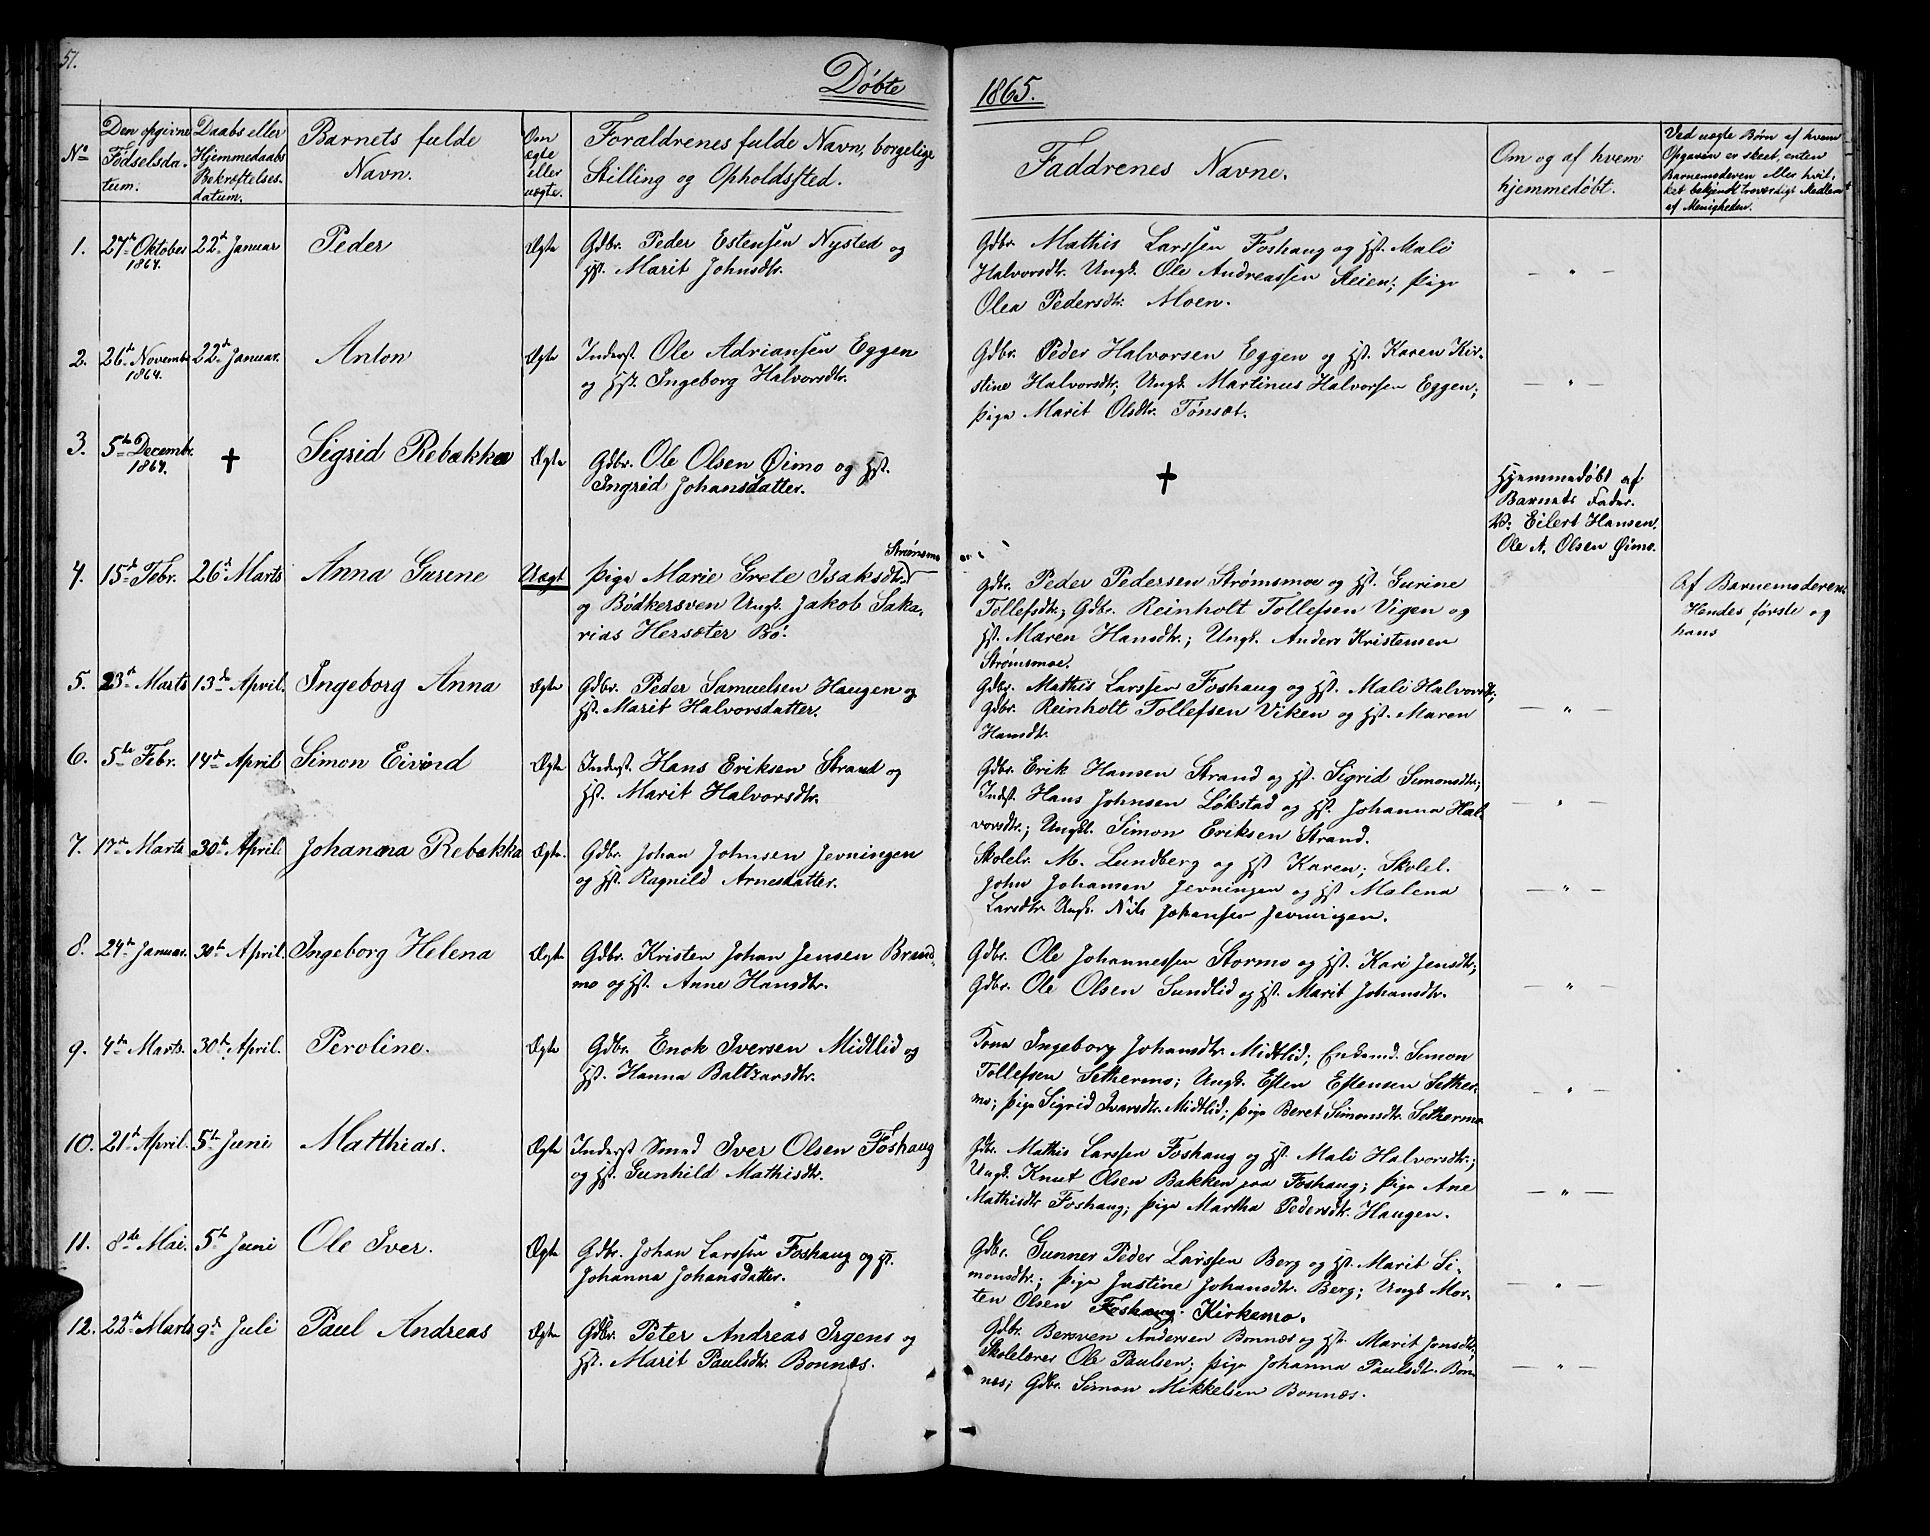 51.
Döbte
1865.
No
Den opgivne Fødselsdatum.
Daabs eller Hjemmedaabs Bekræftelses-datum.
Barnets fulde Navn.
Om ægte eller uægte.
Forældrenes fulde Navn, borgelige Stilling og Opholdssted.
Faddrenes Navne.
Om og af hvem hjemmedøbt.
Ved uægte Børn af hvem Opgaven er skeet, enten Barnemoderen eller hvilket bekjendt troværdigt Medlem af Menigheden.
1. 27de Oktober 1864. 22de Januar Peder Ægte Gdbr. Peder Estensen Nysted og
Hst. Marit Johnsdtr.
Gdbr. Mathis Larssen Foshaug og Hst. Mali
Halvorsdtr. Ungk. Ole Andreassen Steien; Pige
Olea Pedersdtr. Moen.
— " —
2. 26de Novembr 1864. 22de Januar. Anton Ægte Inderst. Ole Adriansen Eggen
og Hst. Ingeborg Halvorsdtr.
Gdbr. Peder Halvorsen Eggen og Hst. Karen Kir-
stine Halvorsdtr; Ungk. Martinus Halvorsen Eggen;
Pige Marit Olsdtr. Tønsæt.
— " —
3. 5te Decembr. 1864. † Sigrid Rebækka Ægte Gdbr. Ole Olsen Øimo og Hst.
Ingrid Johansdatter.
†
Hjemmedøbt af
Barnets Fader.
V: Eilert Hansen.
Ole A. Olsen Øimo.
4. 15de Febr. 26de Marts Anna Gurene Uægt Pige Marie Grete Isaksdtr. Strømsmo
og Bödkersven Ungk. Jakob Saka-
rias Hersæter Bö.
Gdbr. Peder Pedersen Strømsmoe og Hst. Gurine
Tollefsdtr; Gdbr. Reinholt Tollefsen Vigen og
Hst. Maren Hansdtr.; Ungk. Anders Kristensen
Strømsmoe.
Af Barnemoderen.
Hendes første og
hans
5. 23de Marts 13de April. Ingeborg Anna Ægte Gdbr. Peder Samuelsen Haugen og
Hst. Marit Halvorsdatter.
Gdbr. Mathis Larssen Foshaug og Hst. Mali Halvorsdtr;
Gdbr. Reinholt Tollefsen Viken og Hst. Maren
Hansdtr.
— " —
6. 5te Febr. 14de April Simon Eivind Ægte Inderst. Hans Eriksen Strand og
Hst. Marit Halvorsdtr.
Gdbr. Erik Hansen Strand og Hst. Sigrid Simonsdtr;
Indst. Hans Johnsen Løkstad og Hst. Johanna Hal-
vorsdtr.; Ungk. Simon Eriksen Strand.
— " —
7. 17de Marts 30te April. Johanna Rebekka Ægte. Gdbr. Johan Johnsen Jevningen
og Hst. Ragnild Arnesdatter.
Skolelr. M. Lundberg og Hst Karen; Skolel.
John Johansen Jevningen og Hst Malena
Larsdtr. Ungk. Nils Johansen Jevningen.
— " —
8. 24de Januar. 30te April. Ingeborg Helena Ægte Gdbr. Kristen Johan Jensen Brand-
mo og Hst. Anne Hansdtr.
Gdbr. Ole Johannessen Stormo og Hst. Kari Jensdtr;
Gdbr. Ole Olsen Sundlid og Hst. Marit Johansdtr.
— " —
9. 4de Marts. 30te April. Peroline. Ægte Gdbr. Enok Iversen Midtlid og
Hst. Hanna Baltzarsdtr.
Kona Ingeborg Johansdtr. Midtlid; Enkemd. Simon
Tollefsen Sethermo; Ungk. Esten Estensen Sether-
mo; Pige Sigrid Ivarsdtr. Midtlid; Pige Beret Simonsdtr. Sethermo
" —
10. 21de April. 5te Juni Matthias. Ægte Inderst Smed Iver Olsen Foshaug
og Hst. Gunhild Mathisdtr.
Gdbr. Mathis Larssen Foshaug og Hst Mali Halvorsdtr.;
Ungk. Knut Olsen Bakken paa Foshaug; Pige Ane
Mathisdtr Foshaug; Pige Martha Pedersdtr. Haugen.
— " —
11. 8de Mai. 5te Juni Ole Iver. Ægte Gdbr. Johan Larssen Foshaug og Hst.
Johanna Johansdatter.
Gdbr. Gunner Peder Larssen Berg og Hst. Marit Si-
monsdtr.; Pige Justine Johansdtr. Berg; Ungk Mor-
ten Olsen Foshaug. Kirkemo.
— " —
12. 22de Marts 9de Juli Paul Andreas Ægte Gdbr. Peter Andreas Irgens og
Hst. Marit Paulsdtr. Bonnæs.
Gdbr. Bersven Andersen Bonnæs og Hst. Marit Jonsdtr;
Skolelærer Ole Paulsen; Pige Johanna Paulsdtr. Bon-
næs; Gdbr. Simon Mikkelsen Bonnæs.
— " —